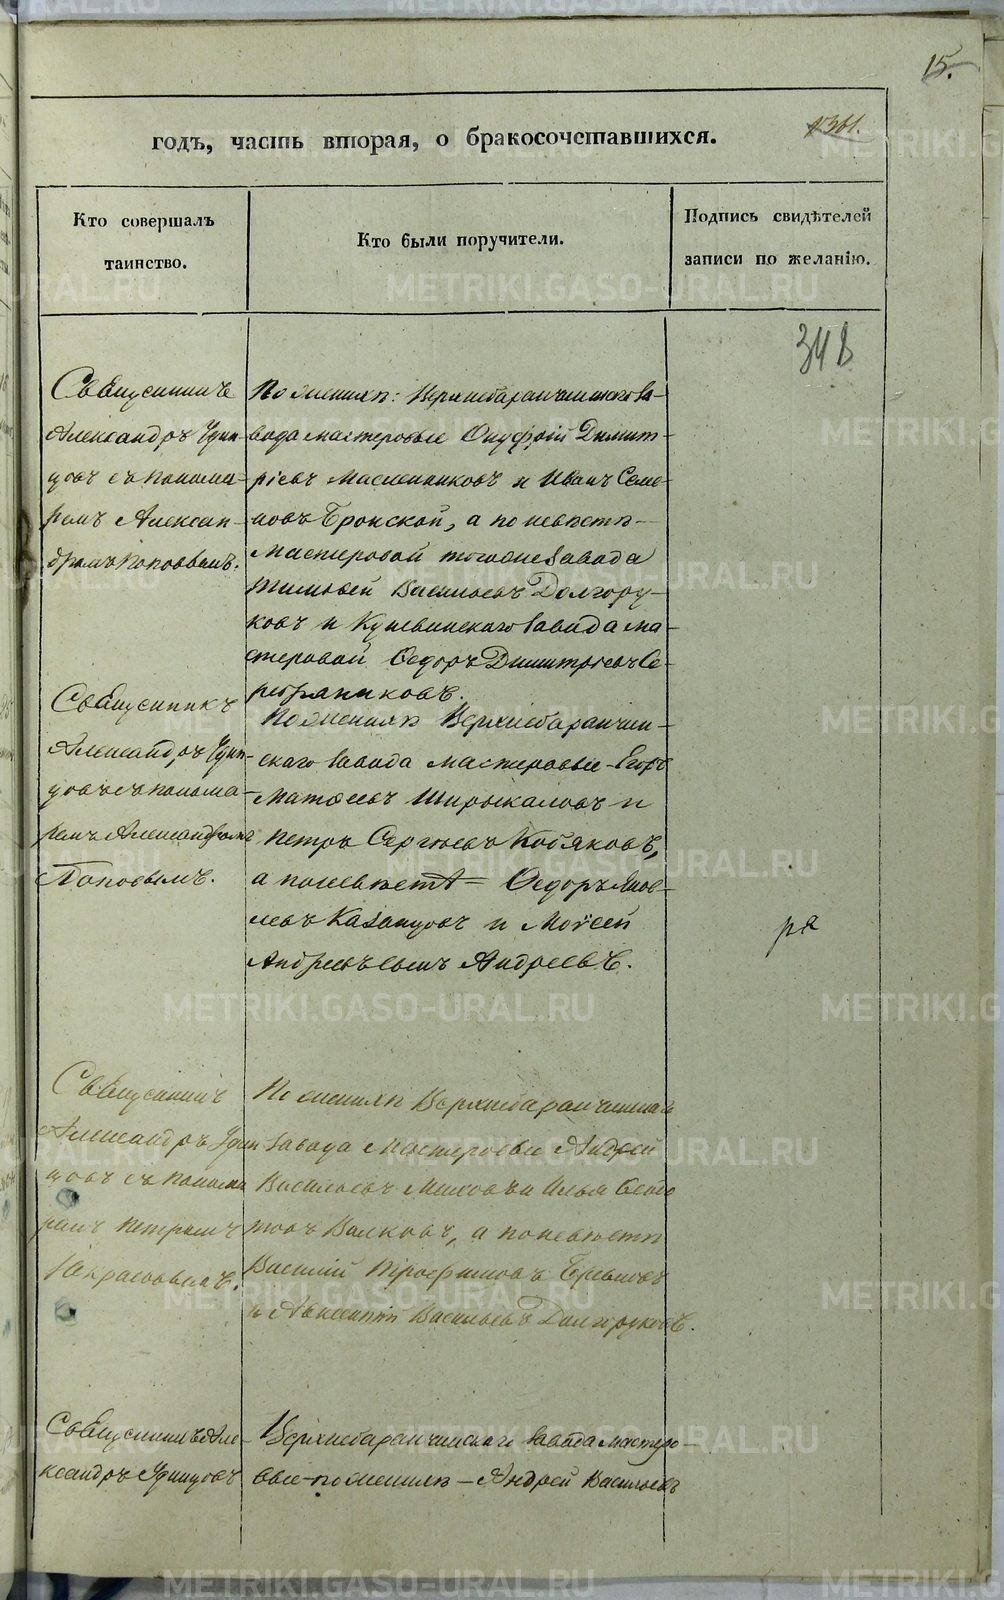 15.
годъ, часть вторая, о бракосочетавшихся.
1361.
Кто совершалъ
таинство.
Кто были поручители.
Подпись свидѣтелей
записи по желанію.
348
Священникъ
Александръ Удин-
цовъ съ понома-
ремъ Алексан-
дромъ Поповымъ.
По женихѣ: Верхнебаранчинскаго за-
вода мастеровые Онуфрій Димит-
ріевъ Масленниковъ и Иванъ Семе-
новъ Бронской, а по невѣстѣ
Мастеровой тогоже завода
Тимофей Васильевъ Долгору-
ковъ и Кушвинскаго завода ма-
стеровой Ѳедоръ Димитріевъ Се-
ребряниковъ.
Священникъ
Александръ Удин-
цовъ съ понома-
ремъ Александромъ
Поповымъ.
По женихѣ Верхнебаранчин-
скаго завода мастеровые Егоръ
Матѳеевъ Широкаловъ и
Петръ Сергѣевъ Кобяковъ,
а по невѣстѣ Ѳедоръ Яков-
левъ Казанцовъ и Моѵсей
Андреевъ сынъ Андреевъ.
ря
Священникъ
Александръ Удин
цовъ съ понома
ремъ Петромъ
Некрасовымъ.
По женихѣ Верхнебаранчинскаго
завода Мастеровые Андрей
Васильевъ и Илья Ѳедо
товъ Волковъ, а по невѣстѣ
Василій Трофимовъ
и Авксентій Васильевъ Долгоруковъ.
Священникъ Але-
ксандръ Удинцовъ
Верхнебаранчинскаго завода мастеро-
вые по женихѣ Андрей Васильевъ
METRIKI.GASO-URAL.RU